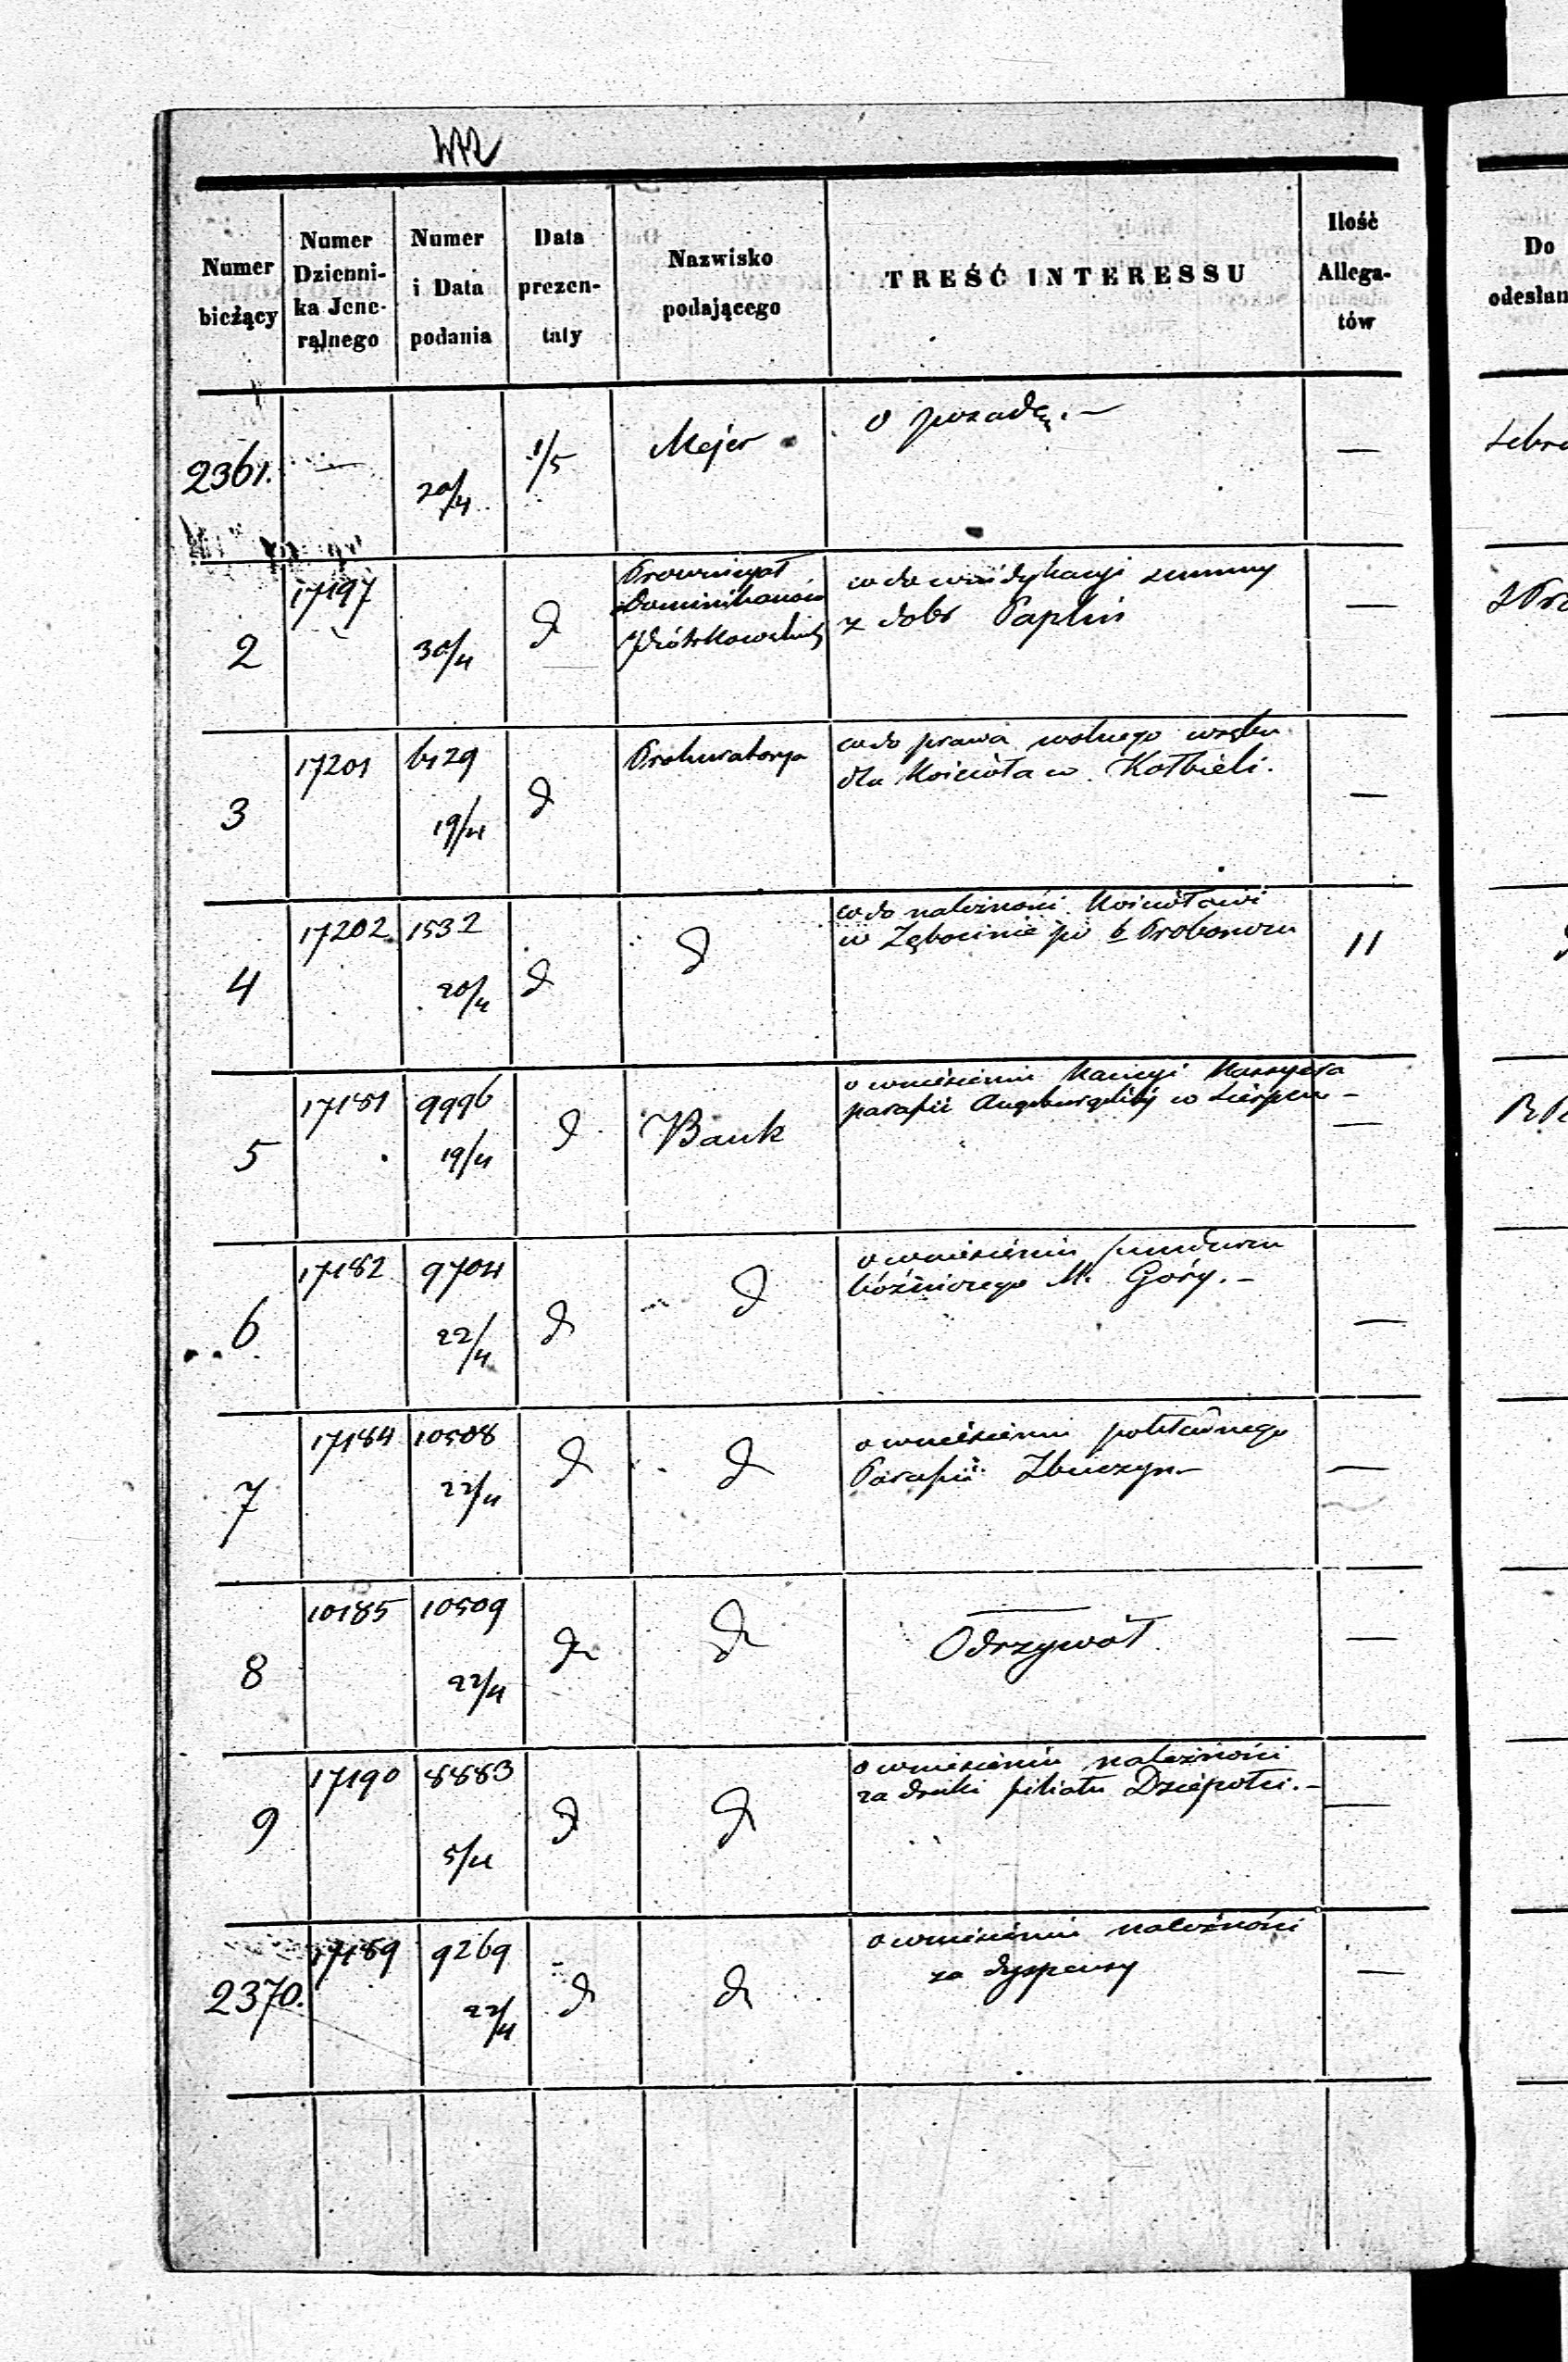 Numer bieżący
Numer Dzienni- ka Jene- rąlnego
Numer i Data podania
Data prezen- taty
Nazwisko podającego
TREŚĆ INTERESSU
Ilość Allega- tów
Do odesłan
2361. — 20/4 1/5 Mejer o posadę. — —
2 17197 30/4 d Prowincyał
Dominikanów
Piótrkowskich
co do windykacyi summy
z dobr Paplin —
3 17201 6129 19/4 d Prokuratorya
co do prawa wolnego wrębu
dla Kościoła w Kołbieli. —
4 17202 1532 20/4 d d
co do należności Kościołowi
w Zębocinie po b Proboszczu 11
5 17181 9996 19/4 d Bank
o wniesieniu Kaucyi Kassyera
parafii Augsburgskiej w Sierpcu — —
6 17182 9704 22/4 d d
o wniesieniu funduszu
bóźniczego M. Góry. — —
7 17184 10508 22/4 d d
o wniesieniu
Parafii Zbuczyn — —
8 10185 10509 22/4 d d
— Odrzywół —
9 17190 8883 5/4 d d
o wniesieniu należności
za druki filiału Dziepołci. — —
2370. 17189 9269 22/4 d d
o wniesieniu należności
za dyspensy —